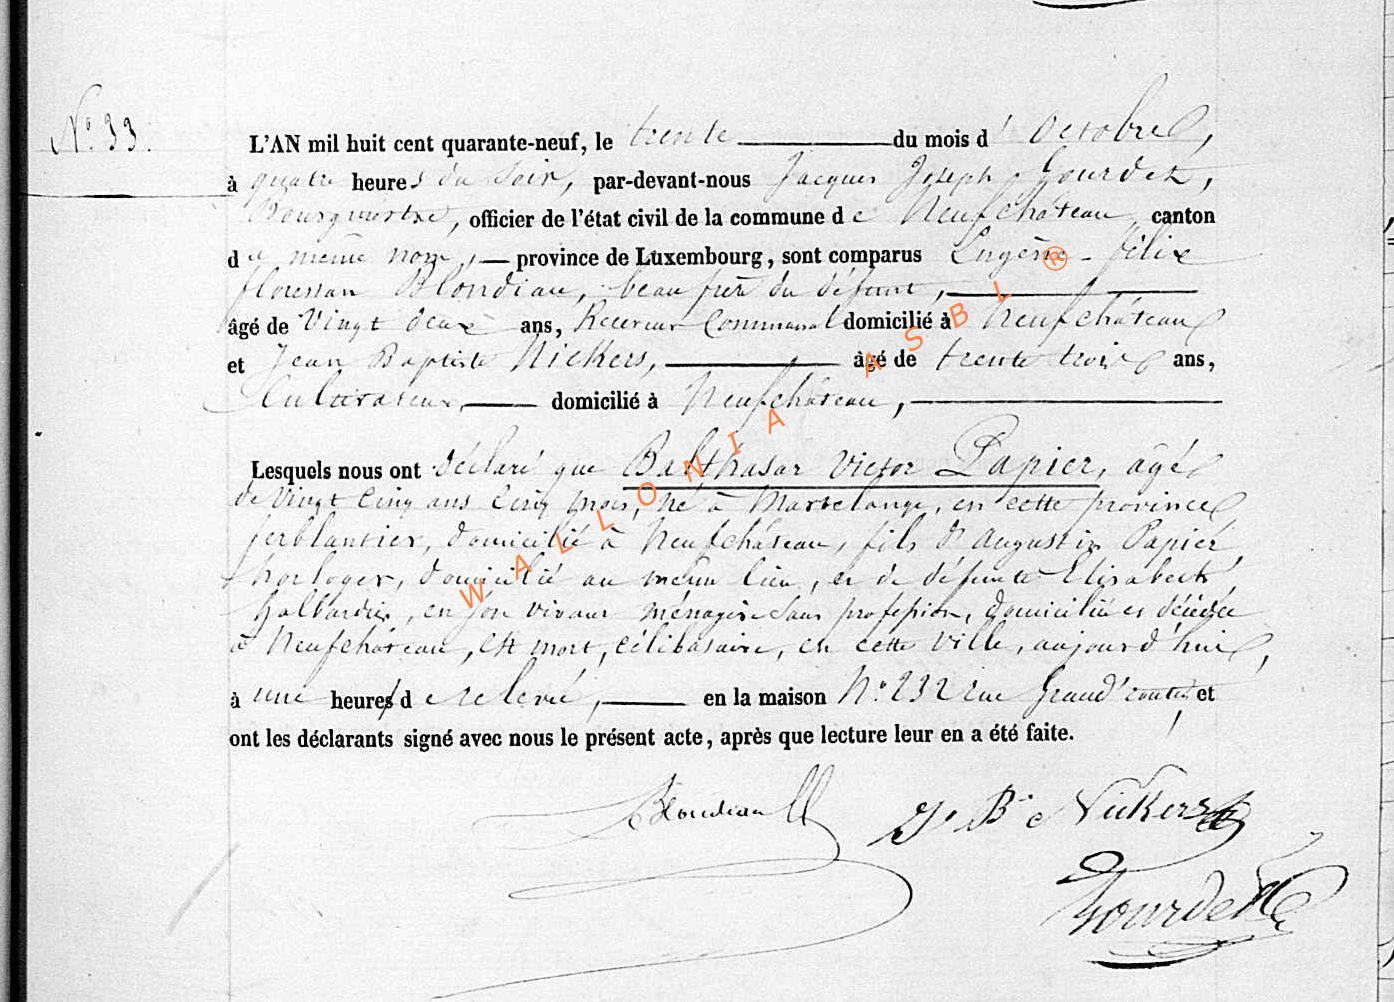 N° 33.
L'AN mil huit cent quarante-neuf, le trente du mois d'octobre,
à quatre heures du soir, par-devant-nous Jacques Joseph Gourdet,
Bourgmestre, officier de l'état civil de la commune de Neufchâteau canton
du même nom, — province de Luxembourg, sont comparus Eugène-Félix
floressan Blondiau, beau frère du défunt,
âgé de Vingt deux ans, Receveur Communal domicilié à Neufchâteau
et Jean Baptiste Nickers, âgé de trente trois ans,
Cultivateur, domicilié à Neufchâteau,
Lesquels nous ont déclaré que Balthasar Victor Papier, âgé
de vingt cinq ans cinq mois, né à Martelange, en cette province
ferblantier, domicilié à Neufchâteau, fils d'Augustin Papier,
horloger, domicilié au même lieu, et de défunte Elisabeth
Halbardier, en son vivant ménagère sans profession, domiciliée et décédée
à Neufchâteau, est mort, célibataire, en cette ville, aujourd'hui,
à une heure de relevée, en la maison N° 232 rue Grand'route, et
ont les déclarants signé avec nous le présent acte, après que lecture leur en a été faite.
Blondiau J. Bte Nickers
Gourdet
WALLONIA ASBL ®